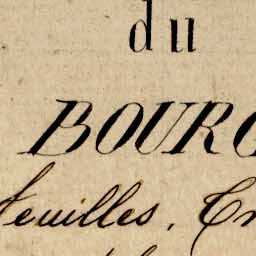 du
BOURG
feuilles. Cr